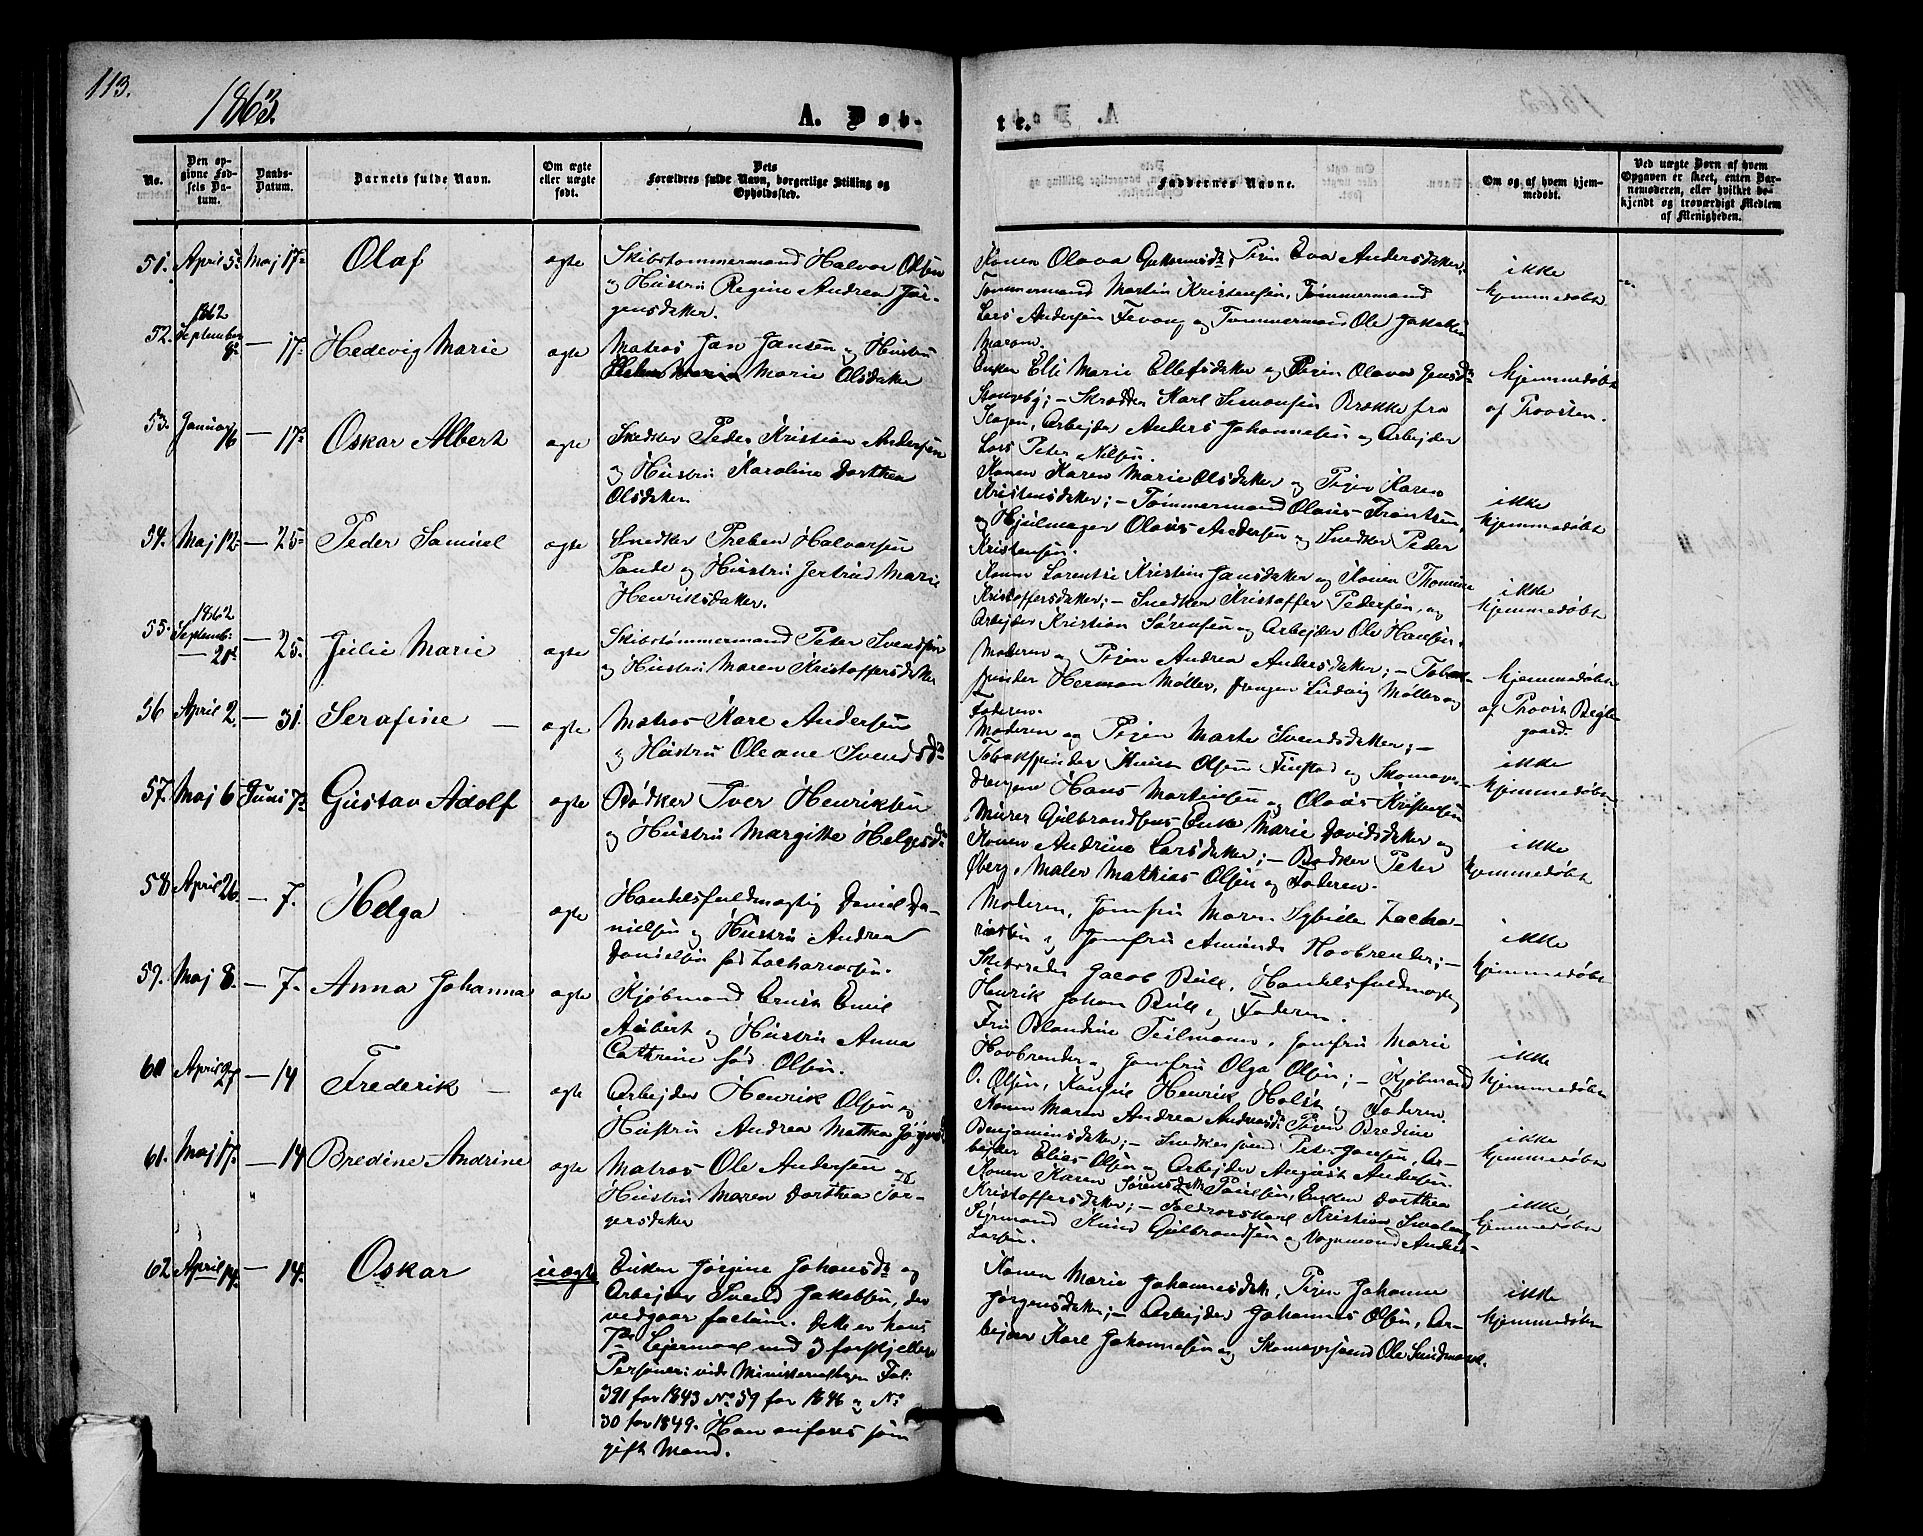 113.
1863.
A. Døb-
te.
No.
Den op-
givne Fød-
sels Da-
tum.
Daabs-
Datum.
Barnets fulde Navn.
Om ægte
eller uægte
født.
Dets
Forældres fulde Navn, borgerlige Stilling og
Opholdssted.
Faddernes Navne.
Om og af hvem hjem-
medøbt.
Ved uægte Børn af hvem
Opgaven er skeet, enten Bar-
nemoderen, eller hvilket be-
kjendt og troværdigt Medlem
af Menigheden.
51. April 5. Maj 17. Olaf ægte
Skibstømmermand Halvor Olsen
og Hustru Regine Andrea Jør-
gensdatter.
Konen Olava Pigen Eva Andersdatter,
Tømmermand Martin Kristensen, Tømmermand
Lars Andersen og Tømmermand Ole Jakobsen
ikke
hjemmedøbt
52. 1862
September
9. — 17. Hedevig Marie ægte
Matros Jan Jansen og Hustru
Marie Olsdatter
Enken Eli Marie Ellefsdatter og Pigen Olava Jensd.
Skrædder Karl Simonsen Brække fra
Slagen, Arbejder Anders Johannesen og Arbejder
Lars Peter Nilsen.
hjemmedøbt
af
53. Januar 16 — 17. Oskar Albert ægte
Snedker Peder Kristian Andersen
og Hustru Karoline Dorthea
Olsdatter
Konen Karen Marie Olsdatter og Pigen Karen
Kristensdatter; — Tømmermand Olaus Frantsen,
og Hjulmager Olaus Andersen og Snedker Peder
Kristensen.
ikke
hjemmedøbt
54. Maj 12. — 25. Peder Samuel ægte
Snedker Preben Halvorsen
Tande og Hustru Jertrud Marie
Henriksdatter.
Konen Lorentse Kristine Jansdatter og Konen Thomine
Kristoffersdatter; — Snedker Kristoffer Pedersen, og
Arbejder Kristian Sørensen og Arbejder Ole Hansen.
ikke
hjemmedøbt
55. 1862
Septemb:
— 21. — 25. Julie Marie ægte
Skibstømmermand Peter Svendsen
og Hustru Maren Kristoffersdatter
Moderen og Pigen Andrea Andersdatter; — Tobak-
spinder Herman Møller, Ludvig Møller og
Faderen.
hjemmedøbt
af
56 April 2. — 31. Serafine — ægte
Matros Karl Andersen
og Hustru Oleane Svendsd.
Moderen og Pigen Marte Svendsdatter; —
Tobakspinder Knut Olsen Finstad og Skomager-
drengene Hans Martinsen og Olaus Kristensen
ikke
hjemmedøbt
57. Maj 6 Juni 7. Gustav Adolf ægte
Bødker Iver Henriksen
og Hustru Margitte Helgesd.
Murer Gulbrandsens Enke Marie Davidsdatter og
Konen Andrine Larsdatter; — Bødker Peter
Øberg, Maler Mathias Olsen og Faderen.
ikke
hjemmedøbt
58 April 26. — 7. Helga ægte
Handelsfuldmægtig Daniel Da-
nielsen og Hustru Andrea
Danielsen født Zachariasen.
Moderen, Jomfru Maren Sybille Zacha-
riasen og Jomfru Amunda Hovbrender; —
Skibsreder Jacob Bull, Handelsfuldmægtig
Henrik Johan Bull og Faderen.
ikke
hjemmedøbt
59. Maj 8. — 7. Anna Johanna ægte
Kjøbmand Ernst Emil
Aubert og Hustru Anna
Cathrine født Olsen.
Fru Blandine Teilmann, Jomfru Marie
Hovbrender og Jomfru Olga Olsen; — Kjøbmand
O. Olsen, Henrik Holst og Faderen.
ikke
hjemmedøbt
60 April 27. — 14 Frederik — ægte
Arbejder Henrik Olsen og
Hustru Andrea Mathea Jørgensd.
Konen Maren Andrea Pigen Bredine
Benjaminsdatter; — Peter Jansen, Ar-
bejder Elias Olsen og Arbejder August Andersen.
ikke
hjemmedøbt
61. Maj 17. — 14 Bredine Andrine ægte
Matros Ole Andersen og
Hustru Maren Dorthea Tor-
gersdatter
Konen Karen Sørensdatter Poulsen, Enken Dorthea
Kristoffersdatter; — Kristian
Styrmand Knud Gulbrandsen og Vognmand Anders
Larsen.
ikke
hjemmedøbt
62 April 14. — 14. Oskar uægte
Enken Jørgine Johansd. og
Arbejder Svend Jakobsen, der
vedgaar factum. Dette er hans
7de Lejermaal med 3 forskjellige
Personer: vide Ministerialbogen Fol:
391 for 1843 No 59 for 1846 og No.
30 for 1849. Han anføres som
gift Mand.
Konen Marie Johannesdatt., Pigen Johanne
Jørgensdatter; — Arbejder Johannes Olsen, Ar-
bejder Karl Johannesen og Skomagersvend Ole
ikke
hjemmedøbt